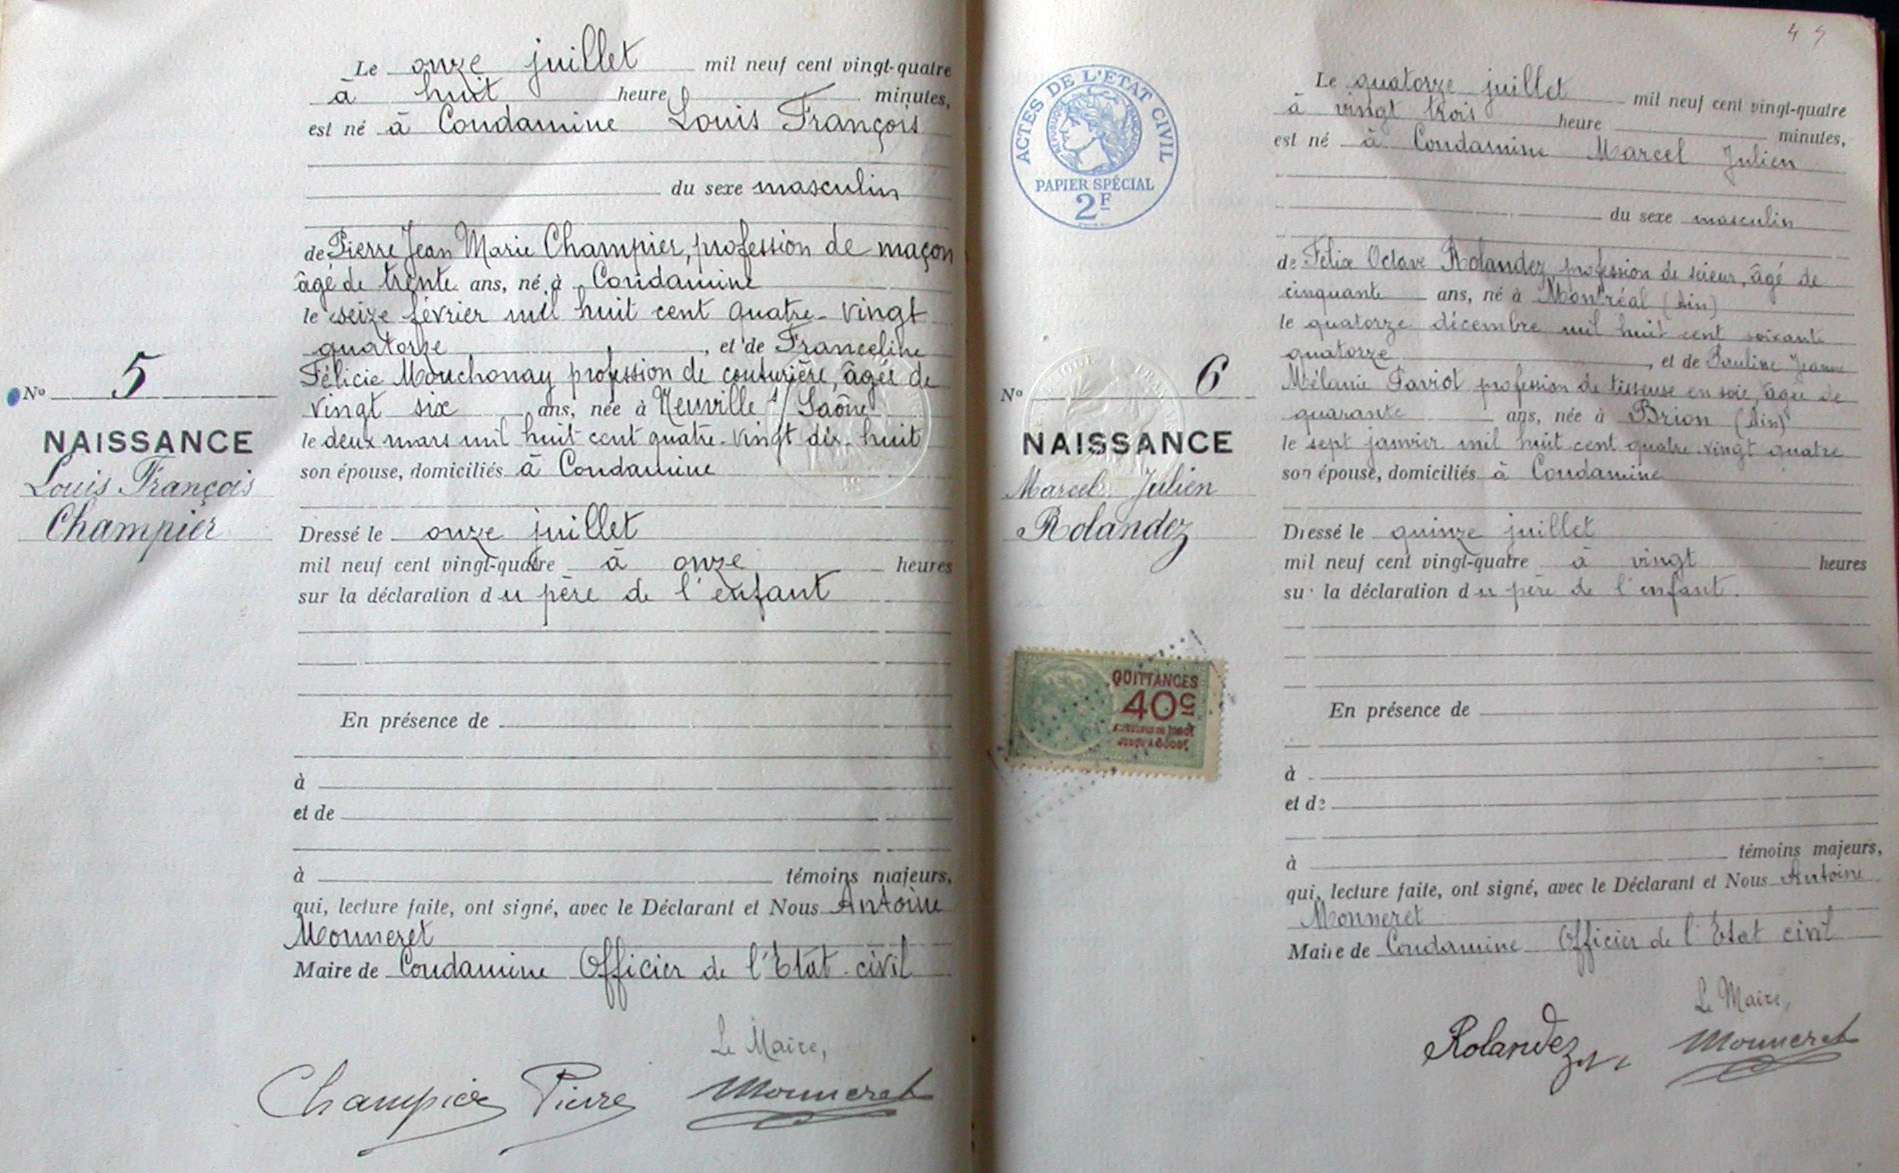 Le onze juillet mil neuf cent vingt-quatre
à huit heure minutes,
est né à Condamine Louis François
du sexe masculin
de Pierre Jean Marie Champier, profession de maçon
âgé de trente ans, né à Condamine
le seize février mil huit cent quatre-vingt
quatorze, et de Franceline
Félicie Mouchonay profession de couturière, âgée de
vingt six ans, née à Neuville s/ Saône
le deux mars mil huit cent quatre-vingt dix-huit
son épouse, domiciliés à Condamine
No 5
NAISSANCE
Louis François
Champier
Dressé le onze juillet
mil neuf cent vingt-quatre à onze heures
sur la déclaration du père de l'enfant
En présence de
à
et de
à témoins majeurs,
qui, lecture faite, ont signé, avec le Déclarant et Nous Antoine
Monneret
Maire de Condamine Officier de l'Etat-civil
Le Maire,
Champier Pierre Monneret
45
ACTES DE L'ETAT CIVIL
PAPIER SPÉCIAL
2F
Le quatorze juillet mil neuf cent vingt-quatre
à vingt trois heure minutes,
est né à Condamine Marcel Julien
du sexe masculin
de Félix Octave Rolandez, profession de scieur, âgé de
cinquante ans, né à Montréal (Ain)
le quatorze décembre mil huit cent soixante
quatorze, et de Pauline Jeanne
Mélanie Taviot profession de tisseuse en soie, âgée de
quarante ans, née à Brion (Ain)
le sept janvier mil huit cent quatre-vingt quatre
son épouse, domiciliés à Condamine
No 6
NAISSANCE
Marcel Julien
Rolandez
Dressé le quinze juillet
mil neuf cent vingt-quatre à vingt heures
sur la déclaration du père de l'enfant.
QUITTANCES
40c
En présence de
à
et de
à témoins majeurs,
qui, lecture faite, ont signé, avec le Déclarant et Nous Antoine
Monneret
Maire de Condamine Officier de l'Etat civil
Le Maire,
Rolandez Monneret